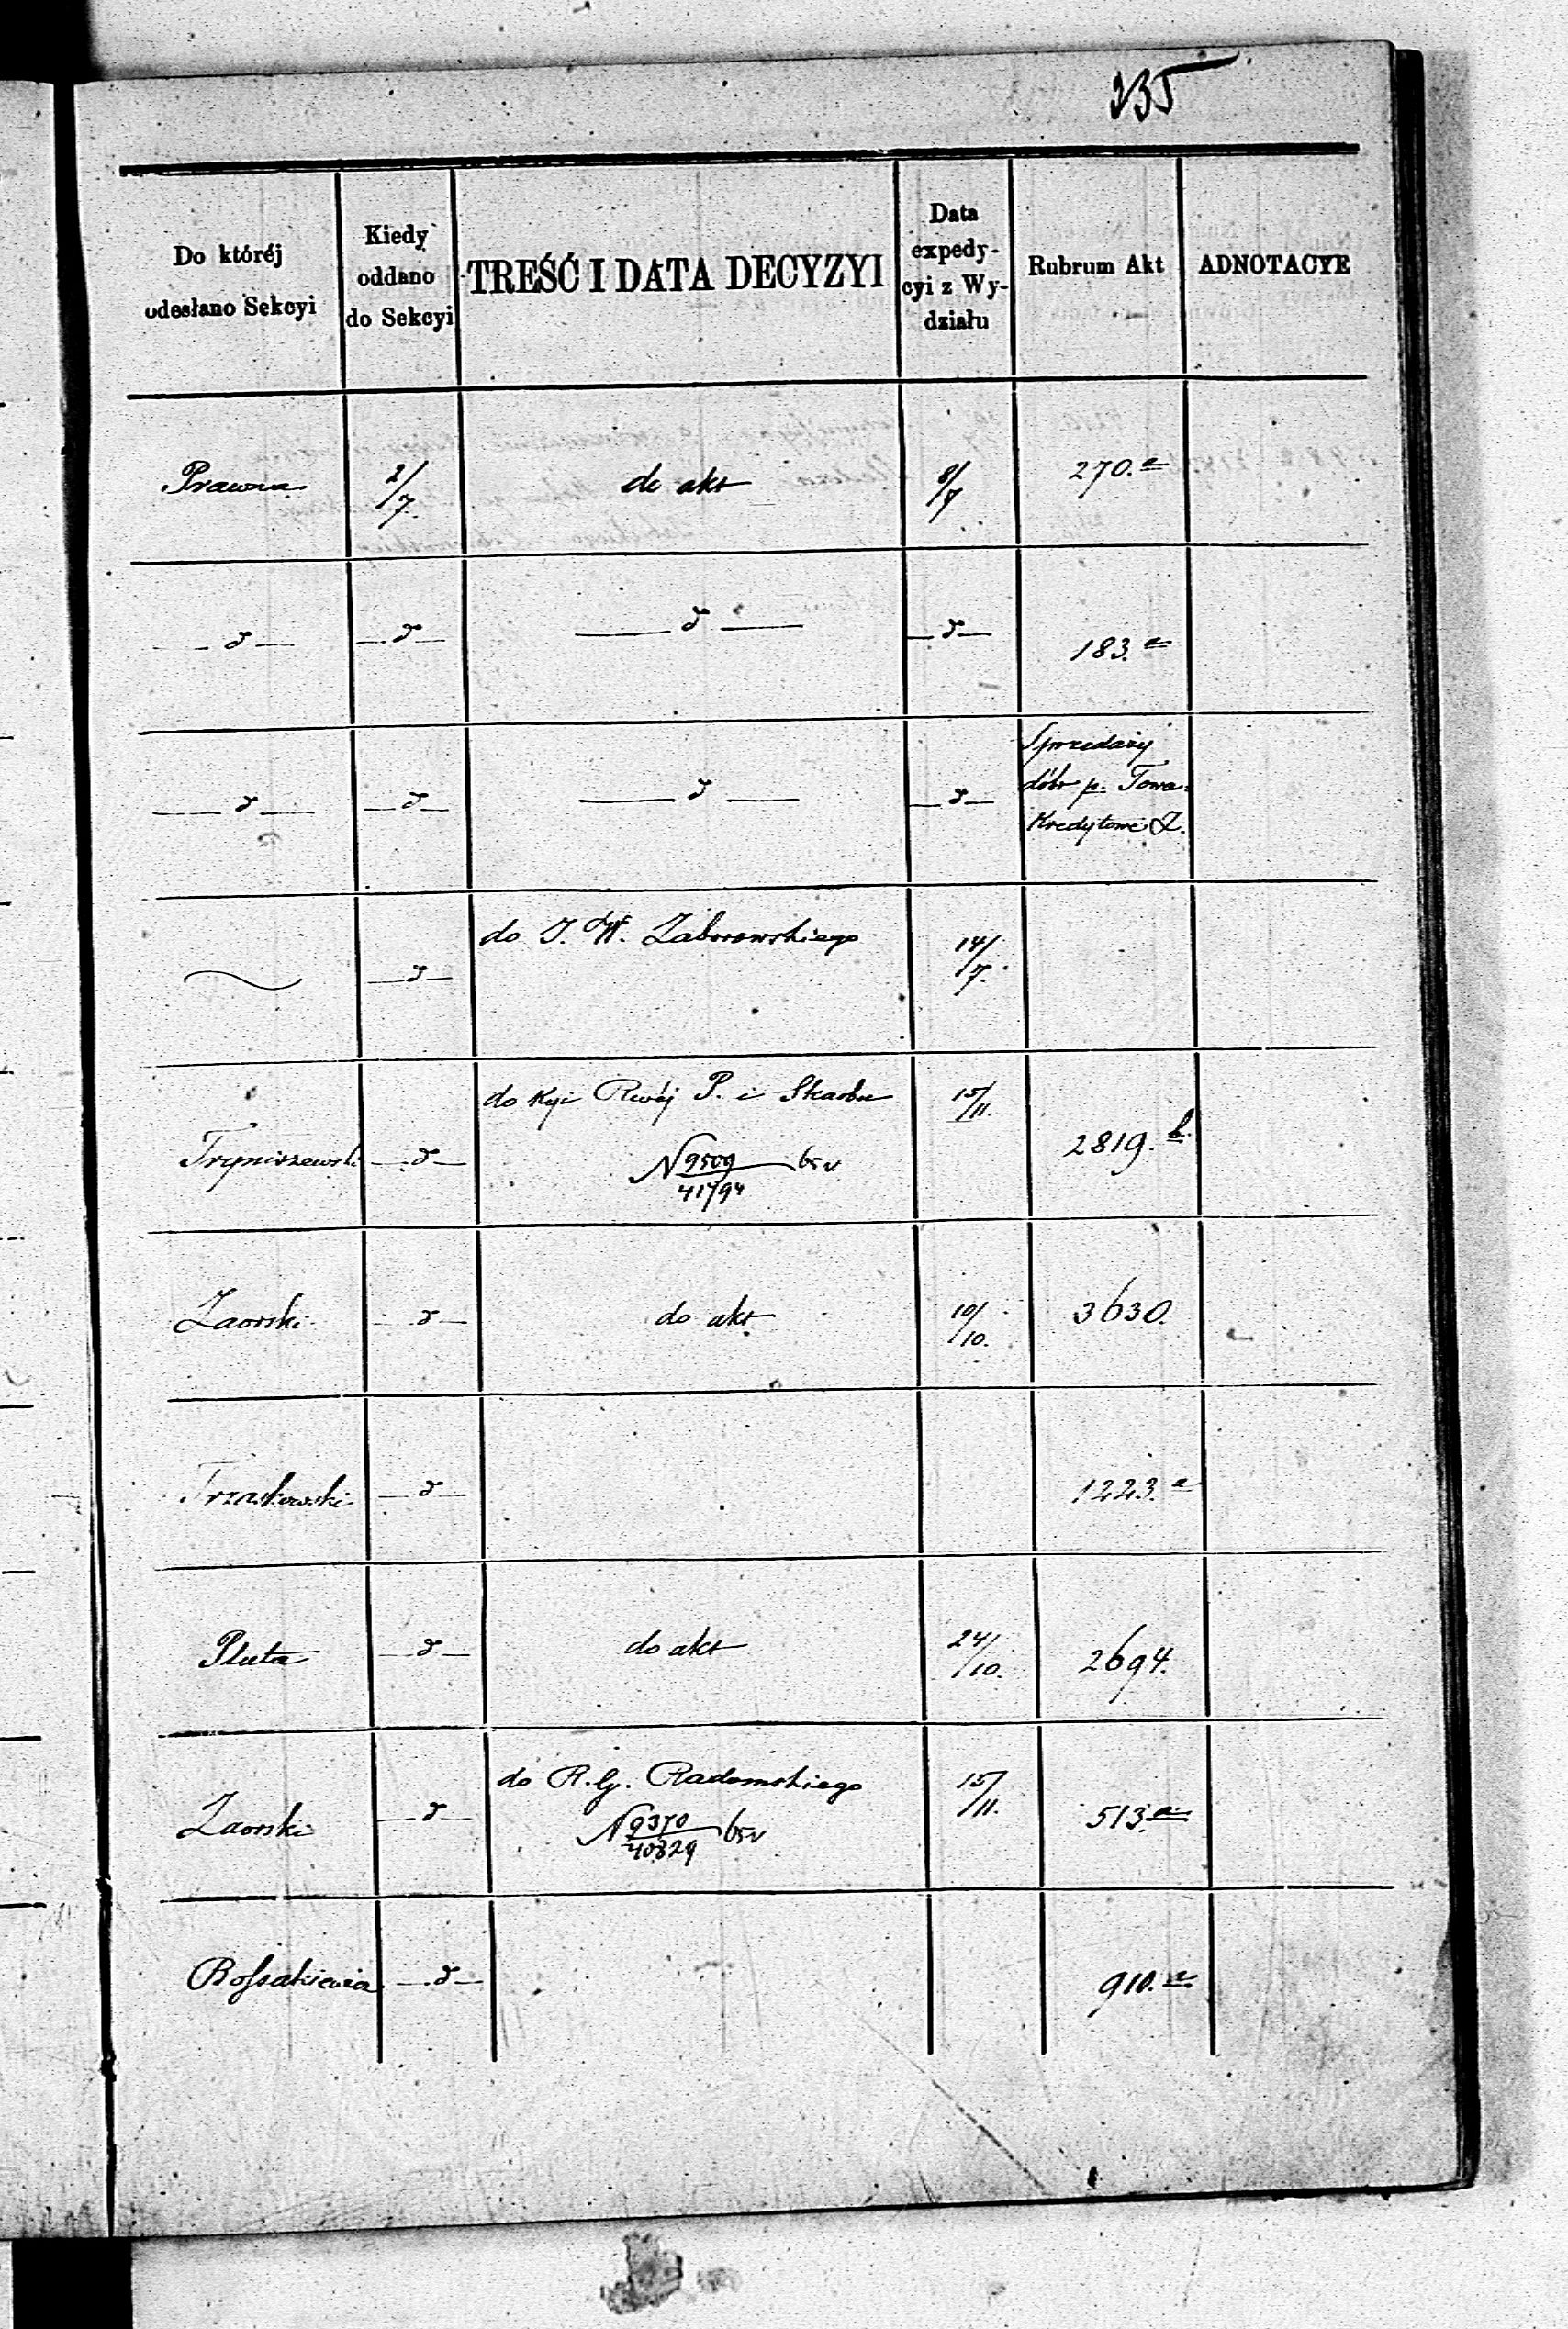 235
Do któréj odesłano Sekcyi
Kiedy oddano do Sekcyi
TREŚĆ I DATA DECYZYI
Data expedy-cyi z Wy-działu
Rubrum Akt
ADNOTACYE
Prawna 2/7. do akt 8/7 270.a
— d — — d — — d — — d — 183.a
— d — — d — — d — — d — Sprzedaży
dóbr p. Towa:
Kredytowe Z.
— d — do J. W. Zaborowskiego 14/7.
do Kyi Rwéj P. i Skarbu 15/11.
Tryniszewski — d — N 9509/41794 2819.b.
Zaorski — d — do akt 10/10. 3630.
Trzaskowski — d — 1223.a
Pluta — d — do akt 24/10. 2694.
do R. G. Radomskiego 15/11.
Zaorski — d — N 9370/40829 513.a
Bossakiewicz — d — 910.a